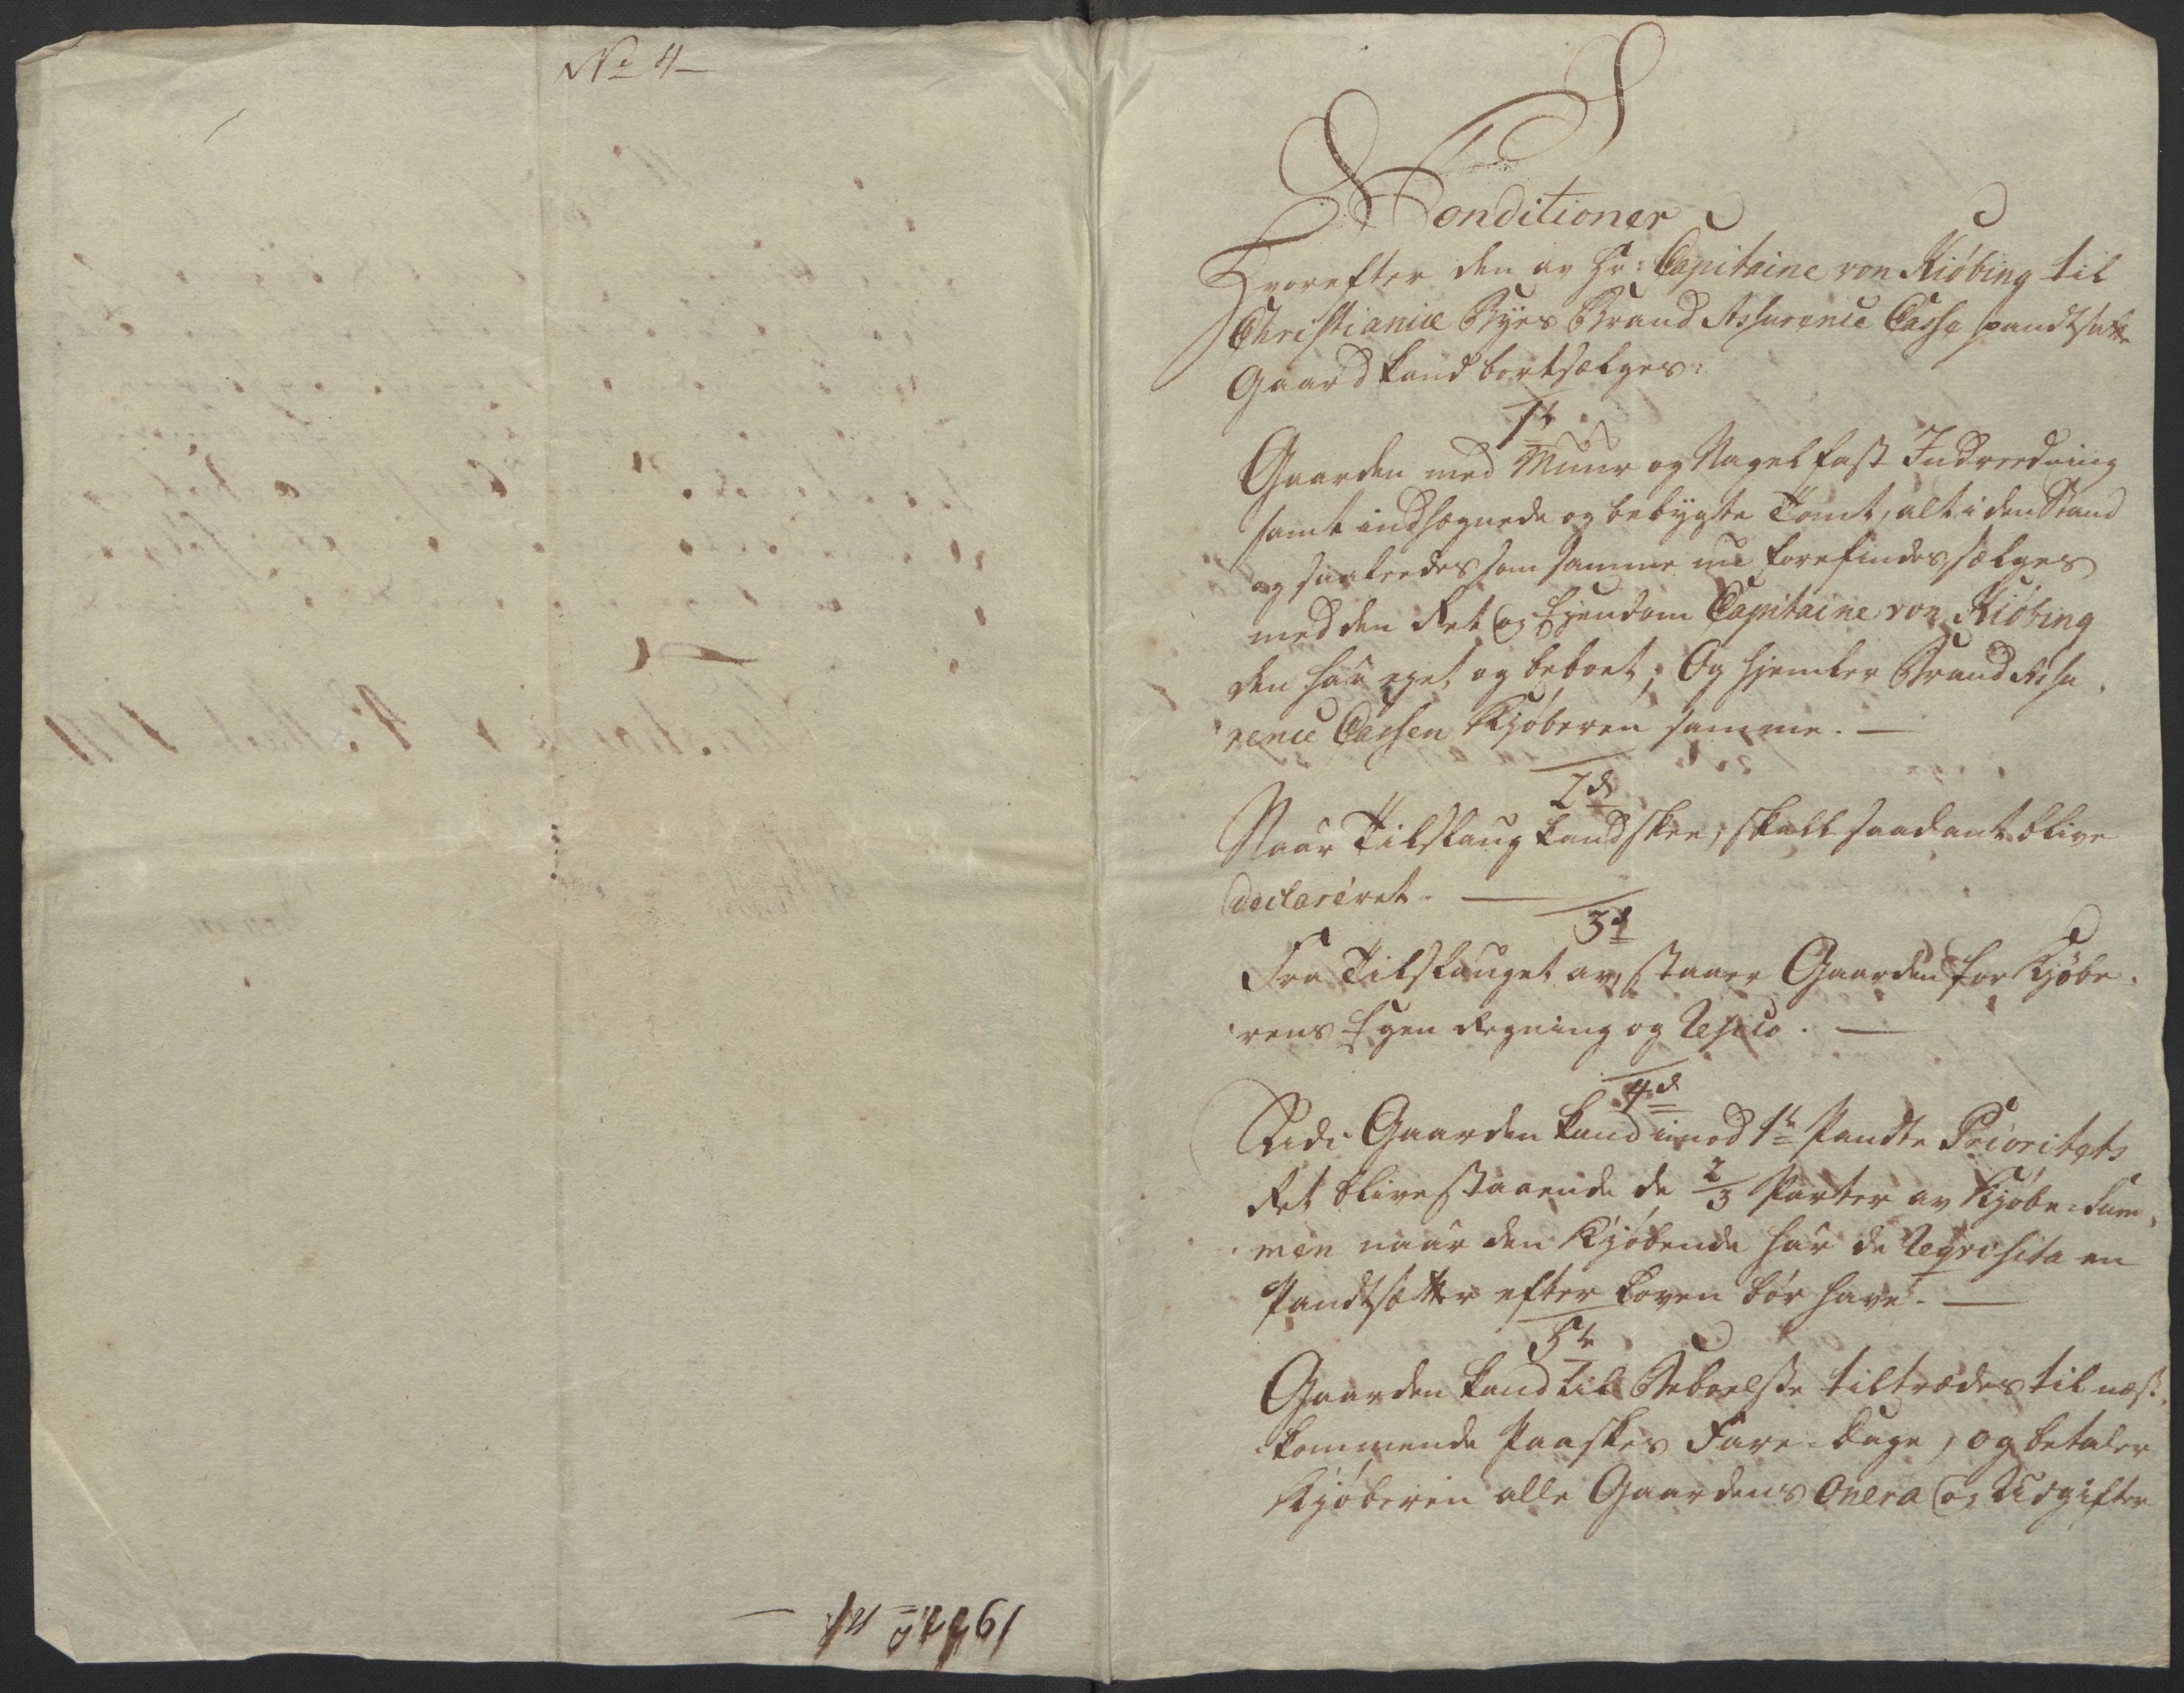 No 4
Conditioner
Hvorefter den av Hr: Capitaine von Kiöbing til
Christianiæ Byes Brand Assurence Cassa pandtsatte
Gaard kand bortsælges:
1te
Gaarden med Muur og Nagelfast Indreedning
samt indhegnede og bebygte Tomt, alt i den Stand
og saaleedes som samme nu forefindes, sælges
med den Ret og Eyendom Capitaine von Kiöbing
den har eyet og beboet; Og hjemler Brand Assu-
rence Cassen Kjøberen samme. —
2d
Naar Tilslaug kand skee, skall saadant blive
declareret. —
3d
Fra Tilslauget av, staaer Gaarden for Kjøbe-
rens Egen Regning og Resico. —
4d
Udi Gaarden kand imod 1te Pandte Prioritets
Ret blive staaende de 2/3 Parter av Kjøbe-Sum-
men naar den Kjøbende har de Reqvisita en
Pandtsætter efter Loven bør have. —
5te
Gaarden kand til Beboelse tiltrædes til næst-
kommende Paaskes Fare-Dage, og betaler
Kjøberen alle Gaardens Onera og Udgifter